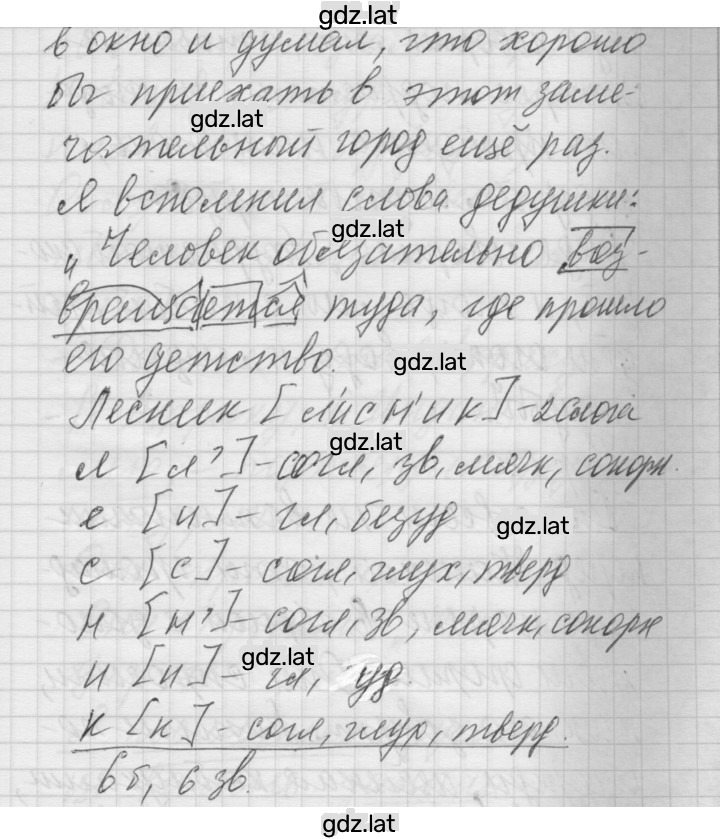 gdz.lat
в окно и думал, что хорошо
бы приехать в этот заме-
gdz.lat
чательный город ещё раз.
Я вспомнил слова дедушки:
gdz.lat
„Человек обязательно воз-
вращается туда, где прошло
его детство.
gdz.lat
Лесник [л'исн'ик] - 2 слога
gdz.lat
л [л'] - согл, зв, мягк, сонорн.
е [и] - гл, безуд
gdz.lat
с [с] - согл, глух, тверд
н [н'] - согл, зв, мягк, сонорн
gdz.lat
и [и] - гл, уд.
к [к] - согл, глух, тверд.
6 б, 6 зв.
gdz.lat